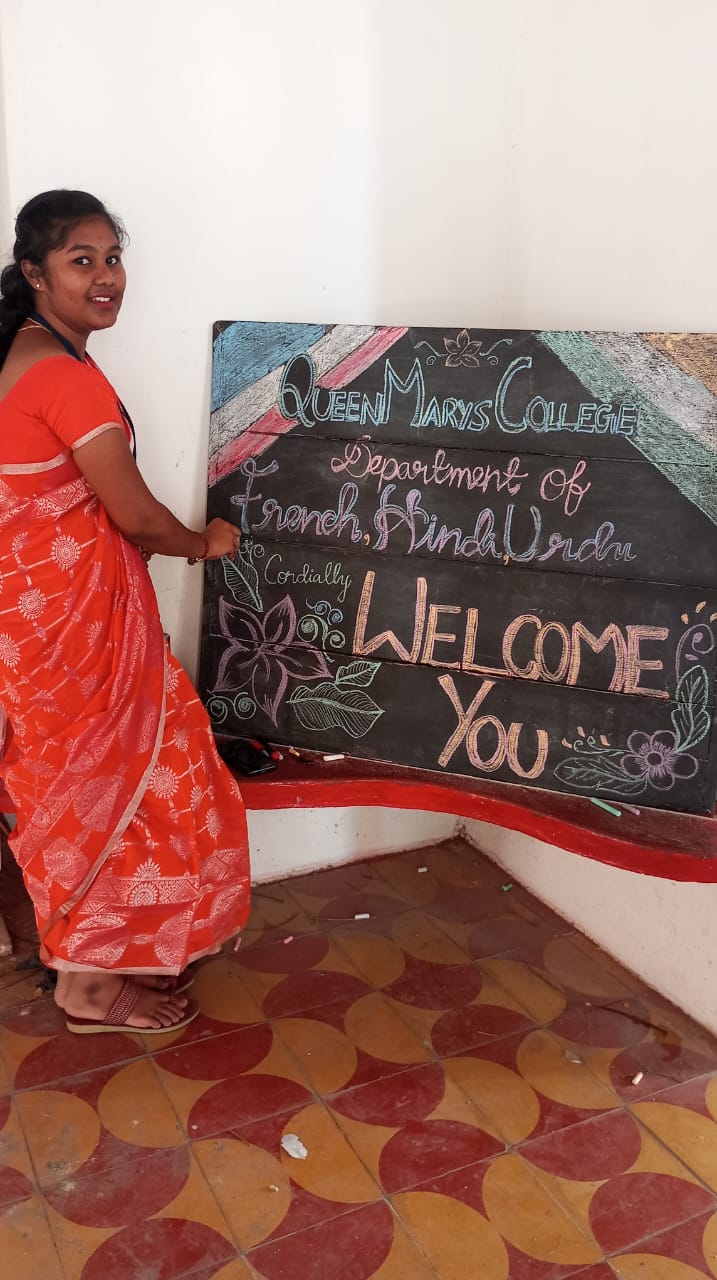 QUEEN MARYS COLLEGE
Department of
French, Hindi, Urdu
Cordially
WELCOME
YOU